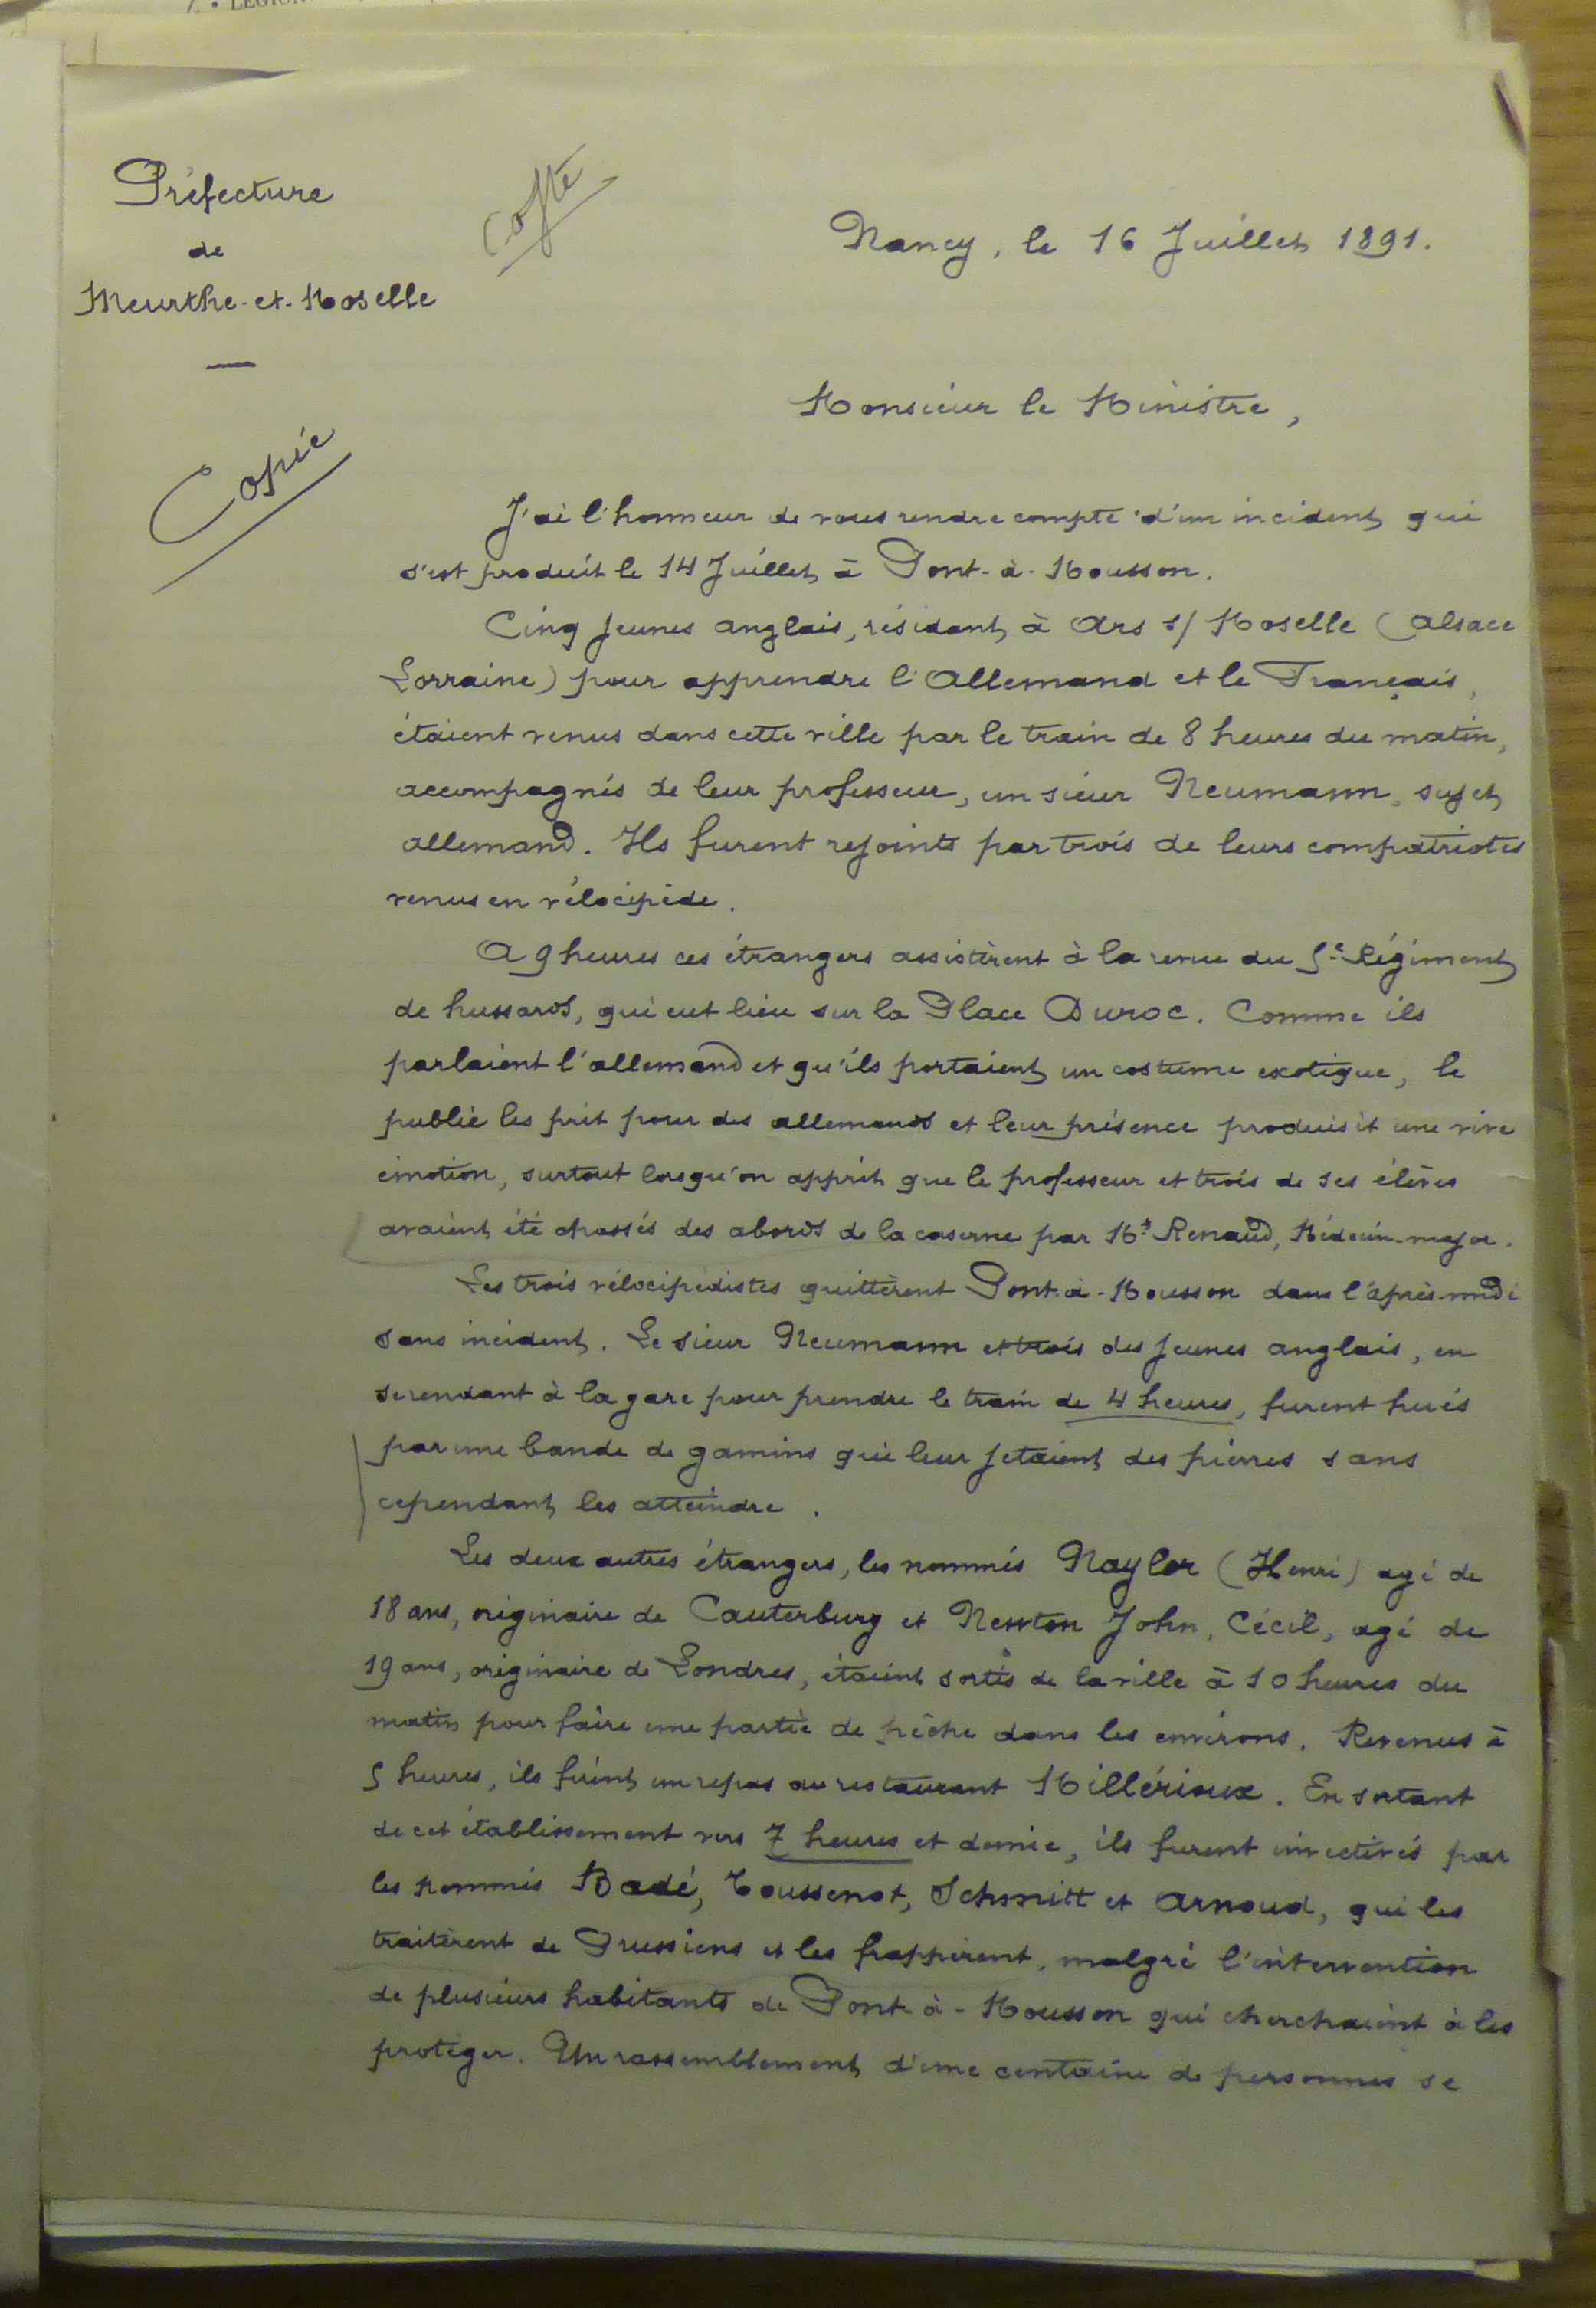 Préfecture
de
Meurthe-et-Moselle
Copie
Nancy, le 16 Juillet 1891.
Monsieur le Ministre,
J'ai l'honneur de vous rendre compte d'un incident qui
s'est produit le 14 Juillet à Pont-à-Mousson.
Cinq jeunes anglais, résidant à Ars s/ Moselle (Alsace
Lorraine) pour apprendre l'Allemand et le Français,
étaient venus dans cette ville par le train de 8 heures du matin,
accompagnés de leur professeur, un sieur Neumann, sujet
allemand. Ils furent rejoints par trois de leurs compatriotes
venus en vélocipède.
A 9 heures ces étrangers assistèrent à la revue du 5e Régiment
de hussards, qui eut lieu sur la Place Duroc. Comme ils
parlaient l'allemand et qu'ils portaient un costume exotique, le
public les prit pour des allemands et leur présence produisit une vive
émotion, surtout lorsqu'on apprit que le professeur et trois de ses élèves
avaient été chassés des abords de la caserne par Mr Renaud, Médecin-major.
Les trois vélocipédistes quittèrent Pont-à-Mousson dans l'après-midi
sans incident. Le sieur Neumann et trois des jeunes anglais, en
se rendant à la gare pour prendre le train de 4 heures, furent hués
par une bande de gamins qui leur jetaient des pierres sans
cependant les atteindre.
Les deux autres étrangers, les nommés Naylor (Henri) agé de
18 ans, originaire de Cauterburg et Newton John, Cécil, agé de
19 ans, originaire de Londres, étaient sortis de la ville à 10 heures du
matin pour faire une partie de pêche dans les environs. Revenus à
5 heures, ils firent un repas au restaurant Millérioux. En sortant
de cet établissement vers 7 heures et demie, ils furent invectivés par
les nommés Badé, Toussenot, Schmitt et Arnoud, qui les
traitèrent de Prussiens et les frappèrent, malgré l'intervention
de plusieurs habitants de Pont-à-Mousson qui cherchaient à les
protéger. Un rassemblement d'une centaine de personnes se